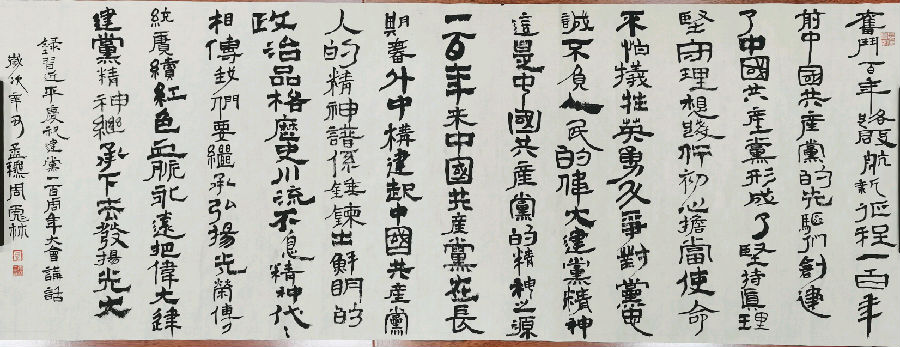 奮鬥百年路啟航新征程一百年
前中國共產黨的先驅們創建
了中國共產黨形成了堅持真理
堅守理想踐行初心擔當使命
不怕犧牲英勇鬥爭對黨忠
誠不負人民的偉大建黨精神
這是中國共產黨的精神之源
一百年來中國共產黨在長
期奮鬥中構建起中國共產黨
人的精神譜係錘鍊出鮮明的
政治品格歷史川流不息精神代々
相傳我們要繼承弘揚光榮傳
統賡續紅色血脈永遠把偉大建
建黨精神繼承下去發揚光大
錄習近平慶祝建黨一百周年大會講話
歲次辛丑 周 林